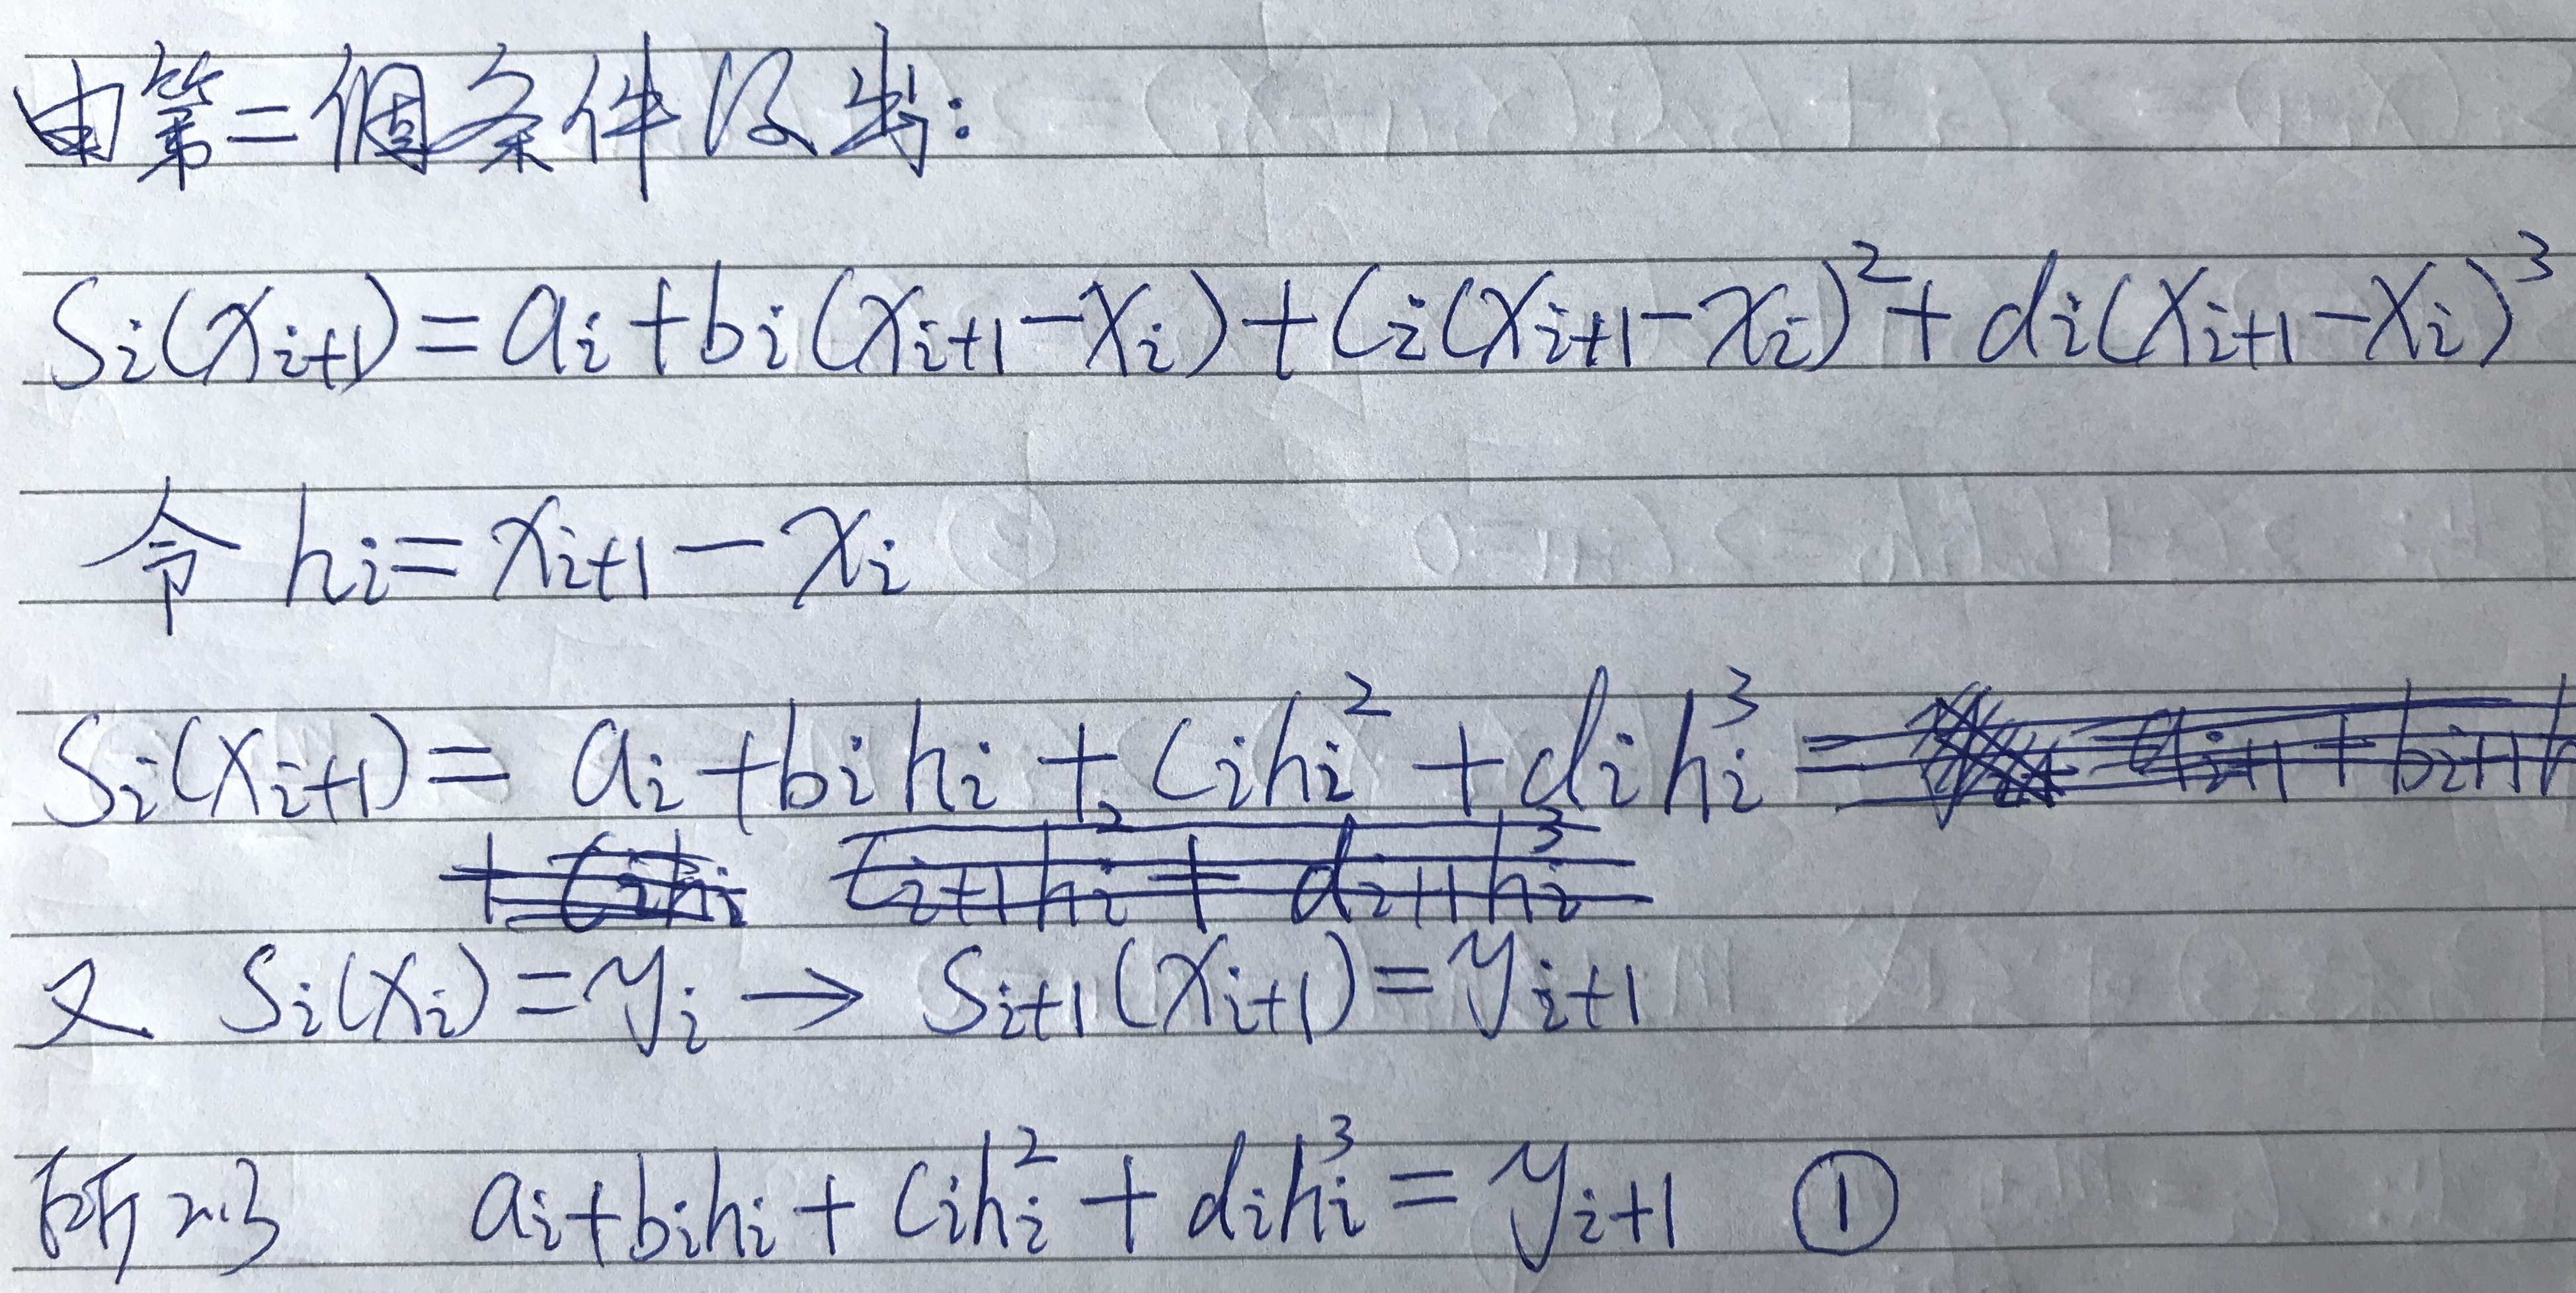 由第二個条件得出:
Si(xi+1)=ai+bi(xi+1-xi)+ci(xi+1-xi)²+di(xi+1-xi)³
令 hi=xi+1-xi
Si(xi+1)= ai+bihi+cihi²+dihi³=
又 Si(xi)=yi→Si+1(xi+1)=yi+1
所以 ai+bihi+cihi²+dihi³=yi+1 ①